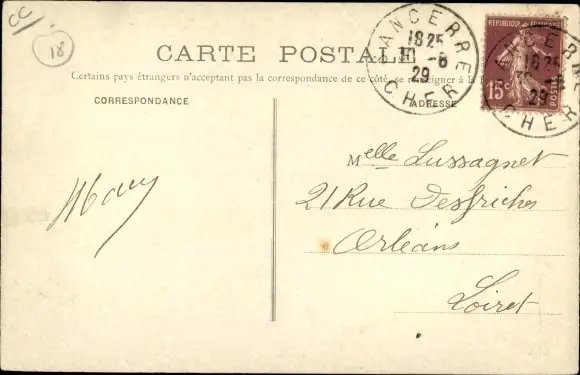 CC
18
CARTE POSTALE
Certains pays étrangers n'acceptant pas la correspondance de ce côté, se renseigner à la
CORRESPONDANCE
ADRESSE
SANCERRE
18 25
10 -6
29
CHER
REPUBLIQUE FRANÇAISE
15c
POSTES
SANCERRE
18 25
10 -6
29
CHER
Melle Lussagnet
21 Rue Desfriches
Orléans
Loiret